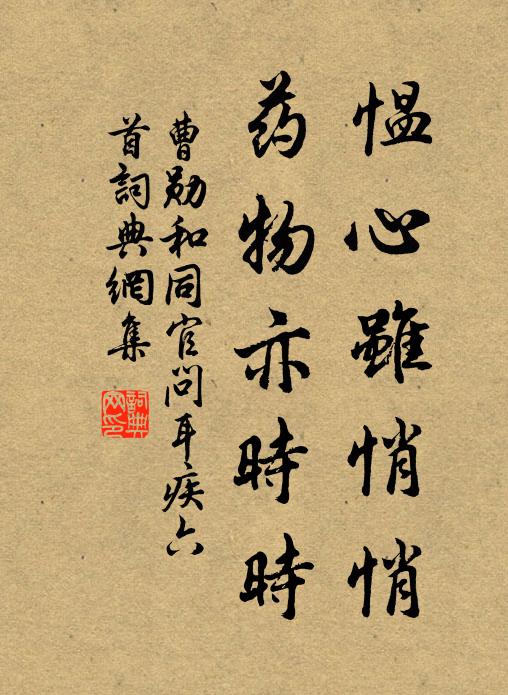 愠心雖悄悄
药物亦時時
曹勋和同官問耳疾六
首詞典網集
詞典
网印